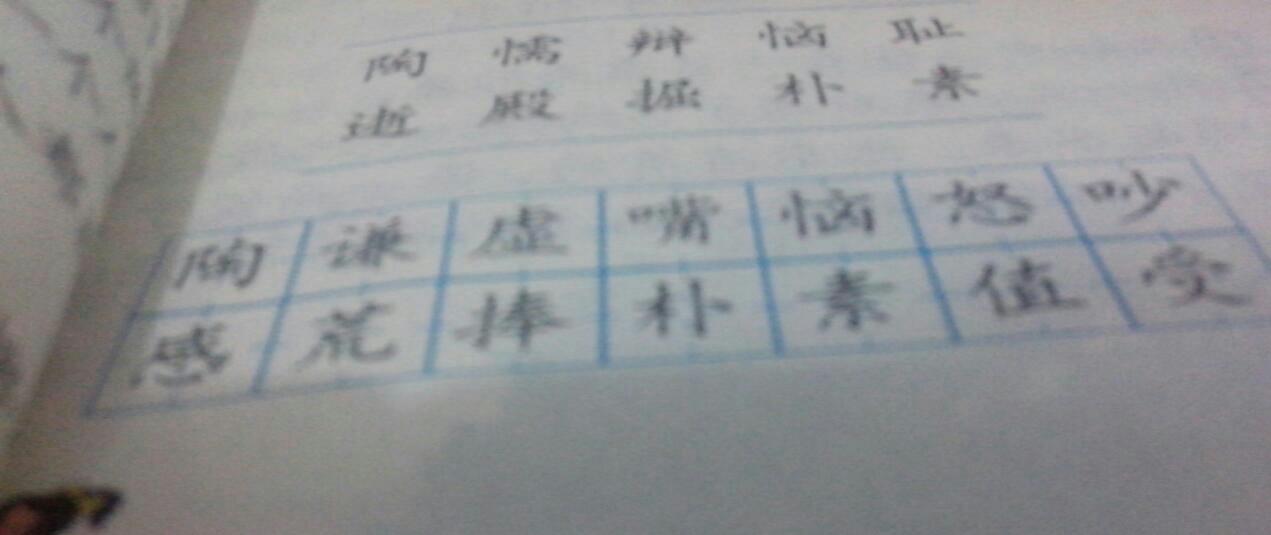 陶 懦 辩 恼 耻
逝 殿 掘 朴 素
陶 谦 虚 嘴 恼 怒 吵
感 荒 捧 朴 素 值 受